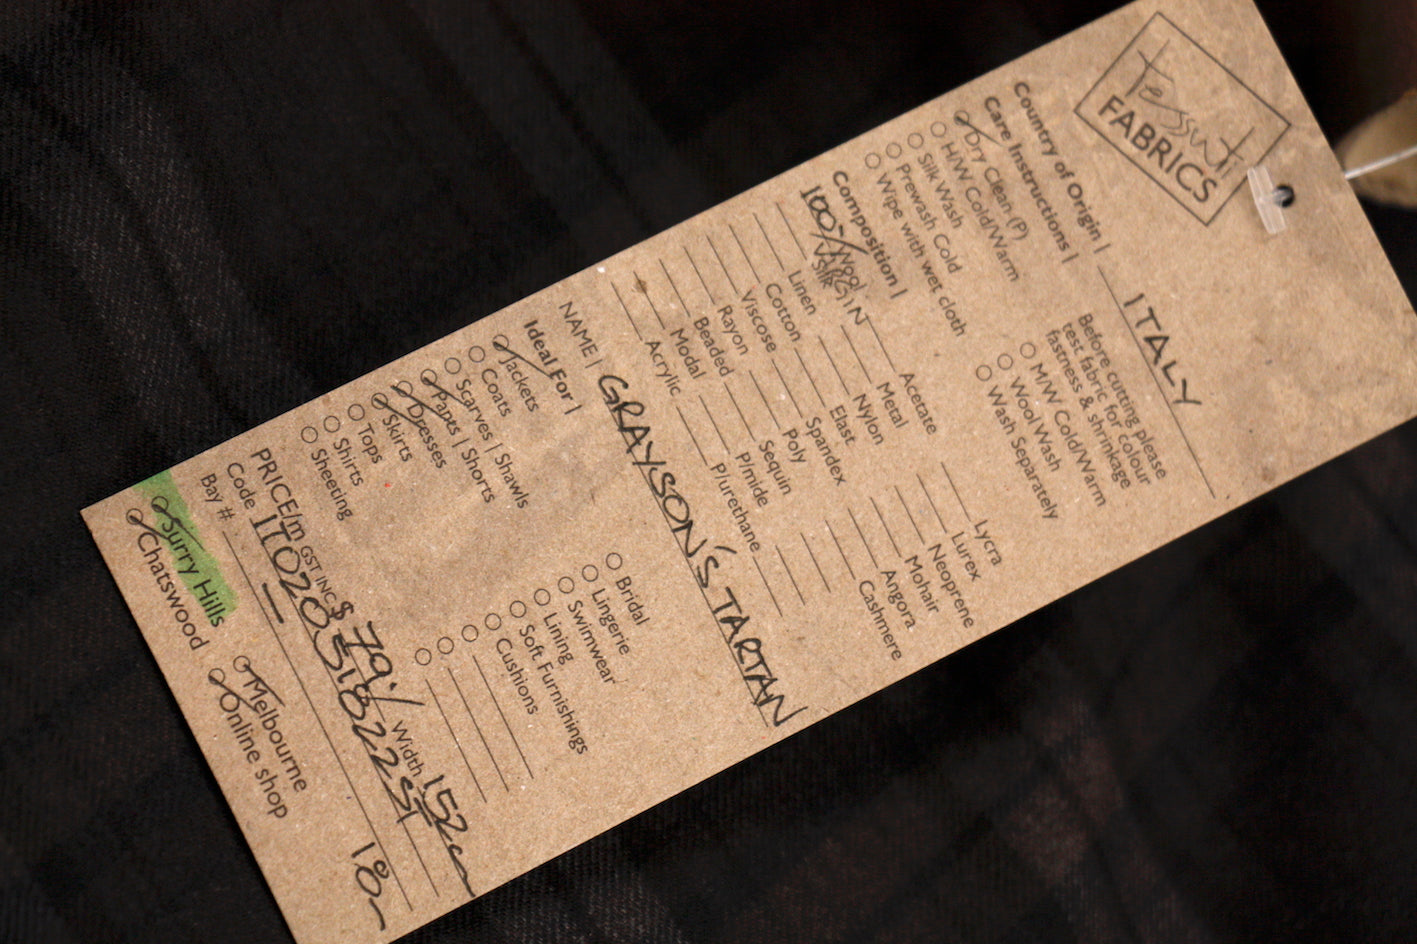 tessuti
FABRICS
Country of Origin | ITALY
Care Instructions |
Dry Clean (P)
H/W Cold/Warm
Silk Wash
Prewash Cold
Wipe with wet cloth
Before cutting please
test fabric for colour
fastness & shrinkage
M/W Cold/Warm
Wool Wash
Wash Separately
Composition |
100% Wool
VIRGIN
Silk
Linen
Cotton
Viscose
Rayon
Beaded
Modal
Acrylic
Acetate
Metal
Nylon
Elast.
Spandex
Poly
Sequin
P/mide
P/urethane
Lycra
Lurex
Neoprene
Mohair
Angora
Cashmere
NAME | GRAYSON'S TARTAN
Ideal For |
Jackets
Coats
Scarves | Shawls
Pants | Shorts
Dresses
Skirts
Tops
Shirts
Sheeting
Bridal
Lingerie
Swimwear
Lining
Soft Furnishings
Cushions
PRICE/m GST INC $ 79 Width 152cm
Code
Bay #
Surry Hills
Chatswood
Melbourne
Online shop